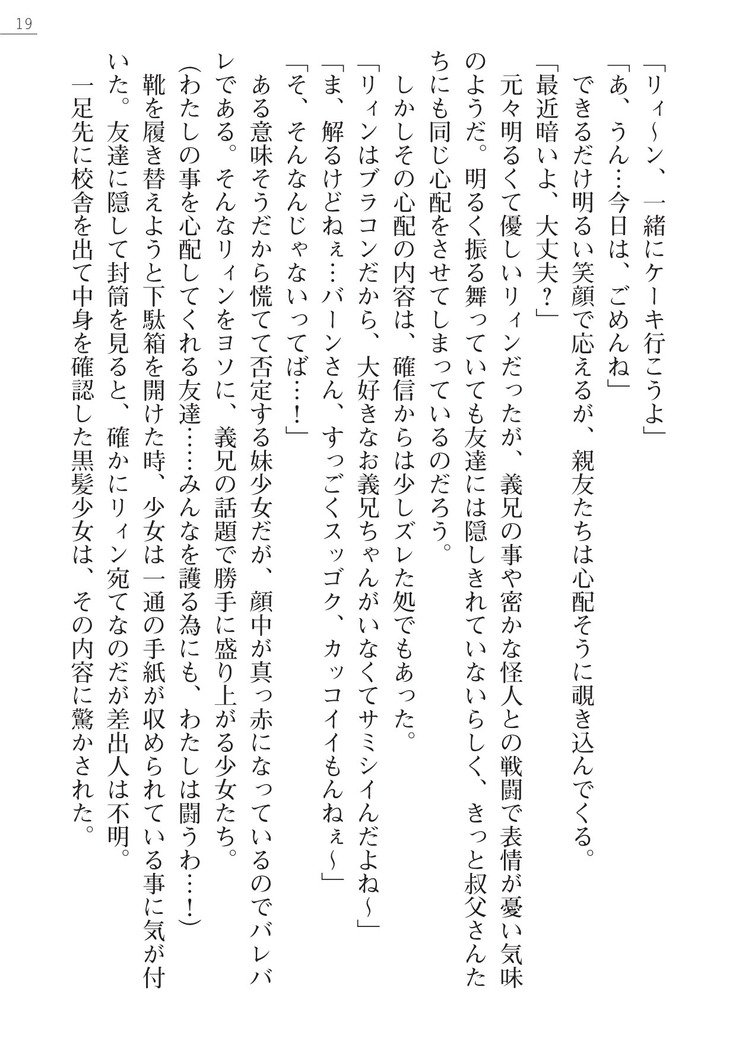 19
「リィ〜ン、一緒にケーキ行こうよ」
「あ、うん…今日は、ごめんね」
できるだけ明るい笑顔で応えるが、親友たちは心配そうに覗き込んでくる。
「最近暗いよ、大丈夫?」
元々明るくて優しいリィンだったが、義兄の事や密かな怪人との戦闘で表情が憂い気味
のようだ。明るく振る舞っていても友達には隠しきれていないらしく、きっと叔父さんた
ちにも同じ心配をさせてしまっているのだろう。
しかしその心配の内容は、確信からは少しズレた処でもあった。
「リィンはブラコンだから、大好きなお義兄ちゃんがいなくてサミシイんだよね〜」
「ま、解るけどねぇ…バーンさん、すっごくスッゴク、カッコイイもんねぇ〜」
「そ、そんなんじゃないってば…!」
ある意味そうだから慌てて否定する妹少女だが、顔中が真っ赤になっているのでバレバ
レである。そんなリィンをヨソに、義兄の話題で勝手に盛り上がる少女たち。
(わたしの事を心配してくれる友達……みんなを護る為にも、わたしは闘うわ…!)
靴を履き替えようと下駄箱を開けた時、少女は一通の手紙が収められている事に気が付
いた。友達に隠して封筒を見ると、確かにリィン宛てなのだが差出人は不明。
一足先に校舎を出て中身を確認した黒髪少女は、その内容に驚かされた。